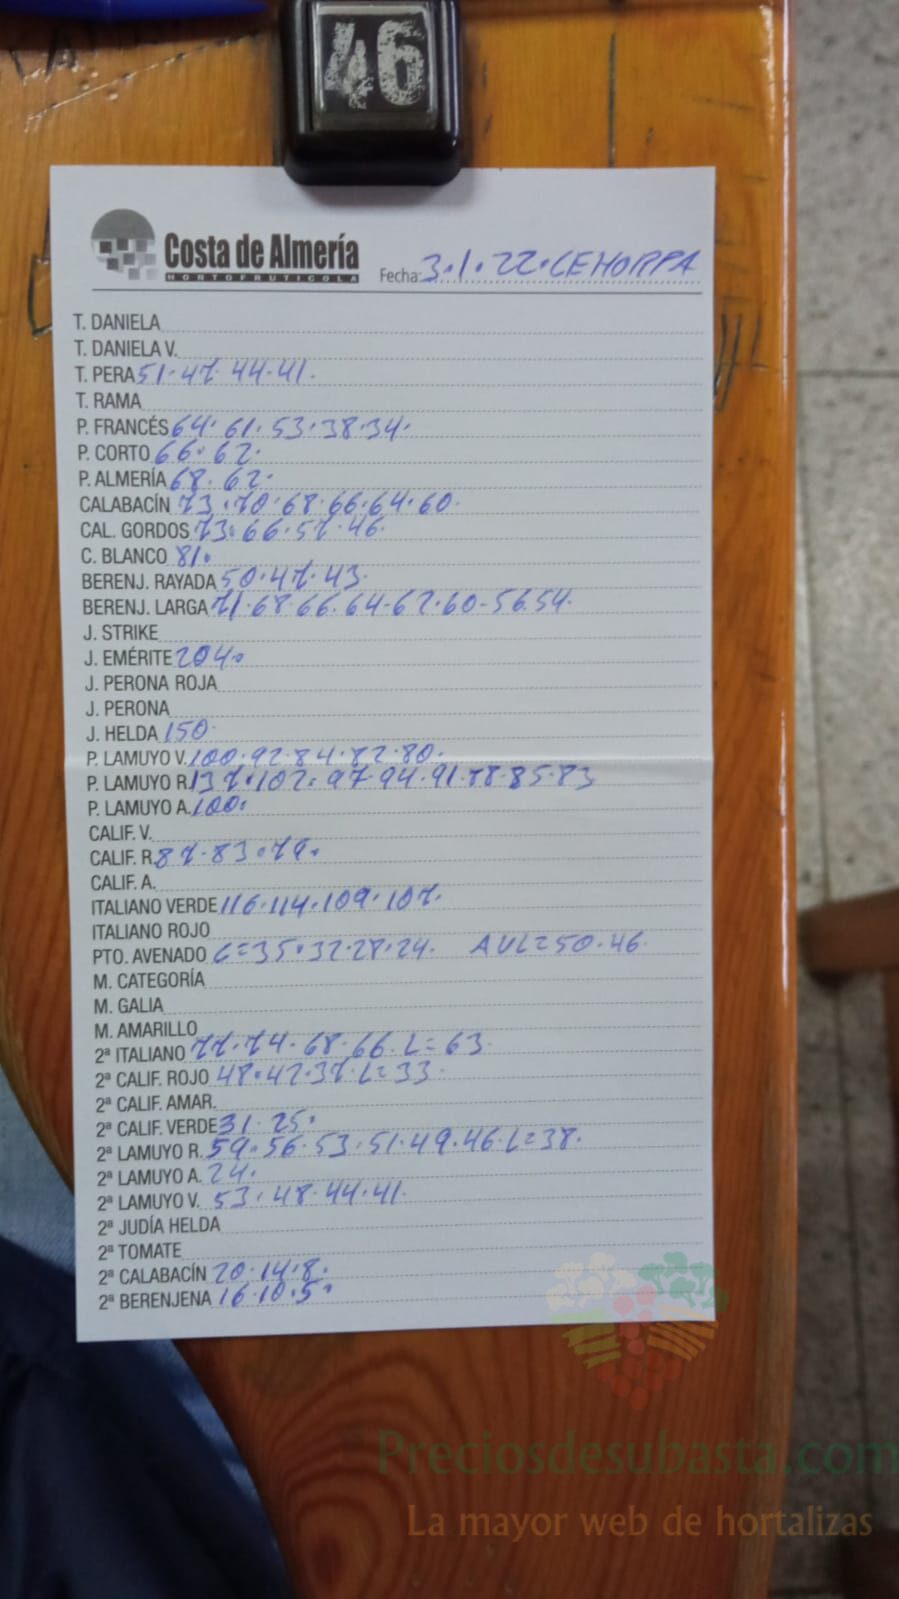 46
Costa de Almería
HORTOFRUTICOLA
Fecha: 3.1.22.CEHORPA
T. DANIELA
T. DANIELA V.
T. PERA 51.47.44.41.
T. RAMA
P. FRANCÉS 64.61.53.38.34.
P. CORTO 66.62.
P. ALMERÍA 68.62.
CALABACÍN 73.70.68.66.64.60.
CAL. GORDOS 73.66.57.46.
C. BLANCO 81.
BERENJ. RAYADA 50.47.43.
BERENJ. LARGA 71.68.66.64-62.60-56.54.
J. STRIKE
J. EMÉRITE 204.
J. PERONA ROJA
J. PERONA
J. HELDA 150.
P. LAMUYO V. 100.92.84.82.80.
P. LAMUYO R. 137.102.97.94.91.88.85.83
P. LAMUYO A. 100.
CALIF. V.
CALIF. R. 87.83.79.
CALIF. A.
ITALIANO VERDE 116.114.109.107.
ITALIANO ROJO
PTO. AVENADO C=35.32.28.24. AVL=50.46.
M. CATEGORÍA
M. GALIA
M. AMARILLO
2ª ITALIANO 77.74.68.66.L=63.
2ª CALIF. ROJO 48.42.37.L=33.
2ª CALIF. AMAR.
2ª CALIF. VERDE 31.25.
2ª LAMUYO R. 59.56.53.51.49.46.L=38.
2ª LAMUYO A. 24.
2ª LAMUYO V. 53.48.44.41.
2ª JUDÍA HELDA
2ª TOMATE
2ª CALABACÍN 20.14.8.
2ª BERENJENA 16.10.5.
Preciosdesubasta.com
La mayor web de hortalizas